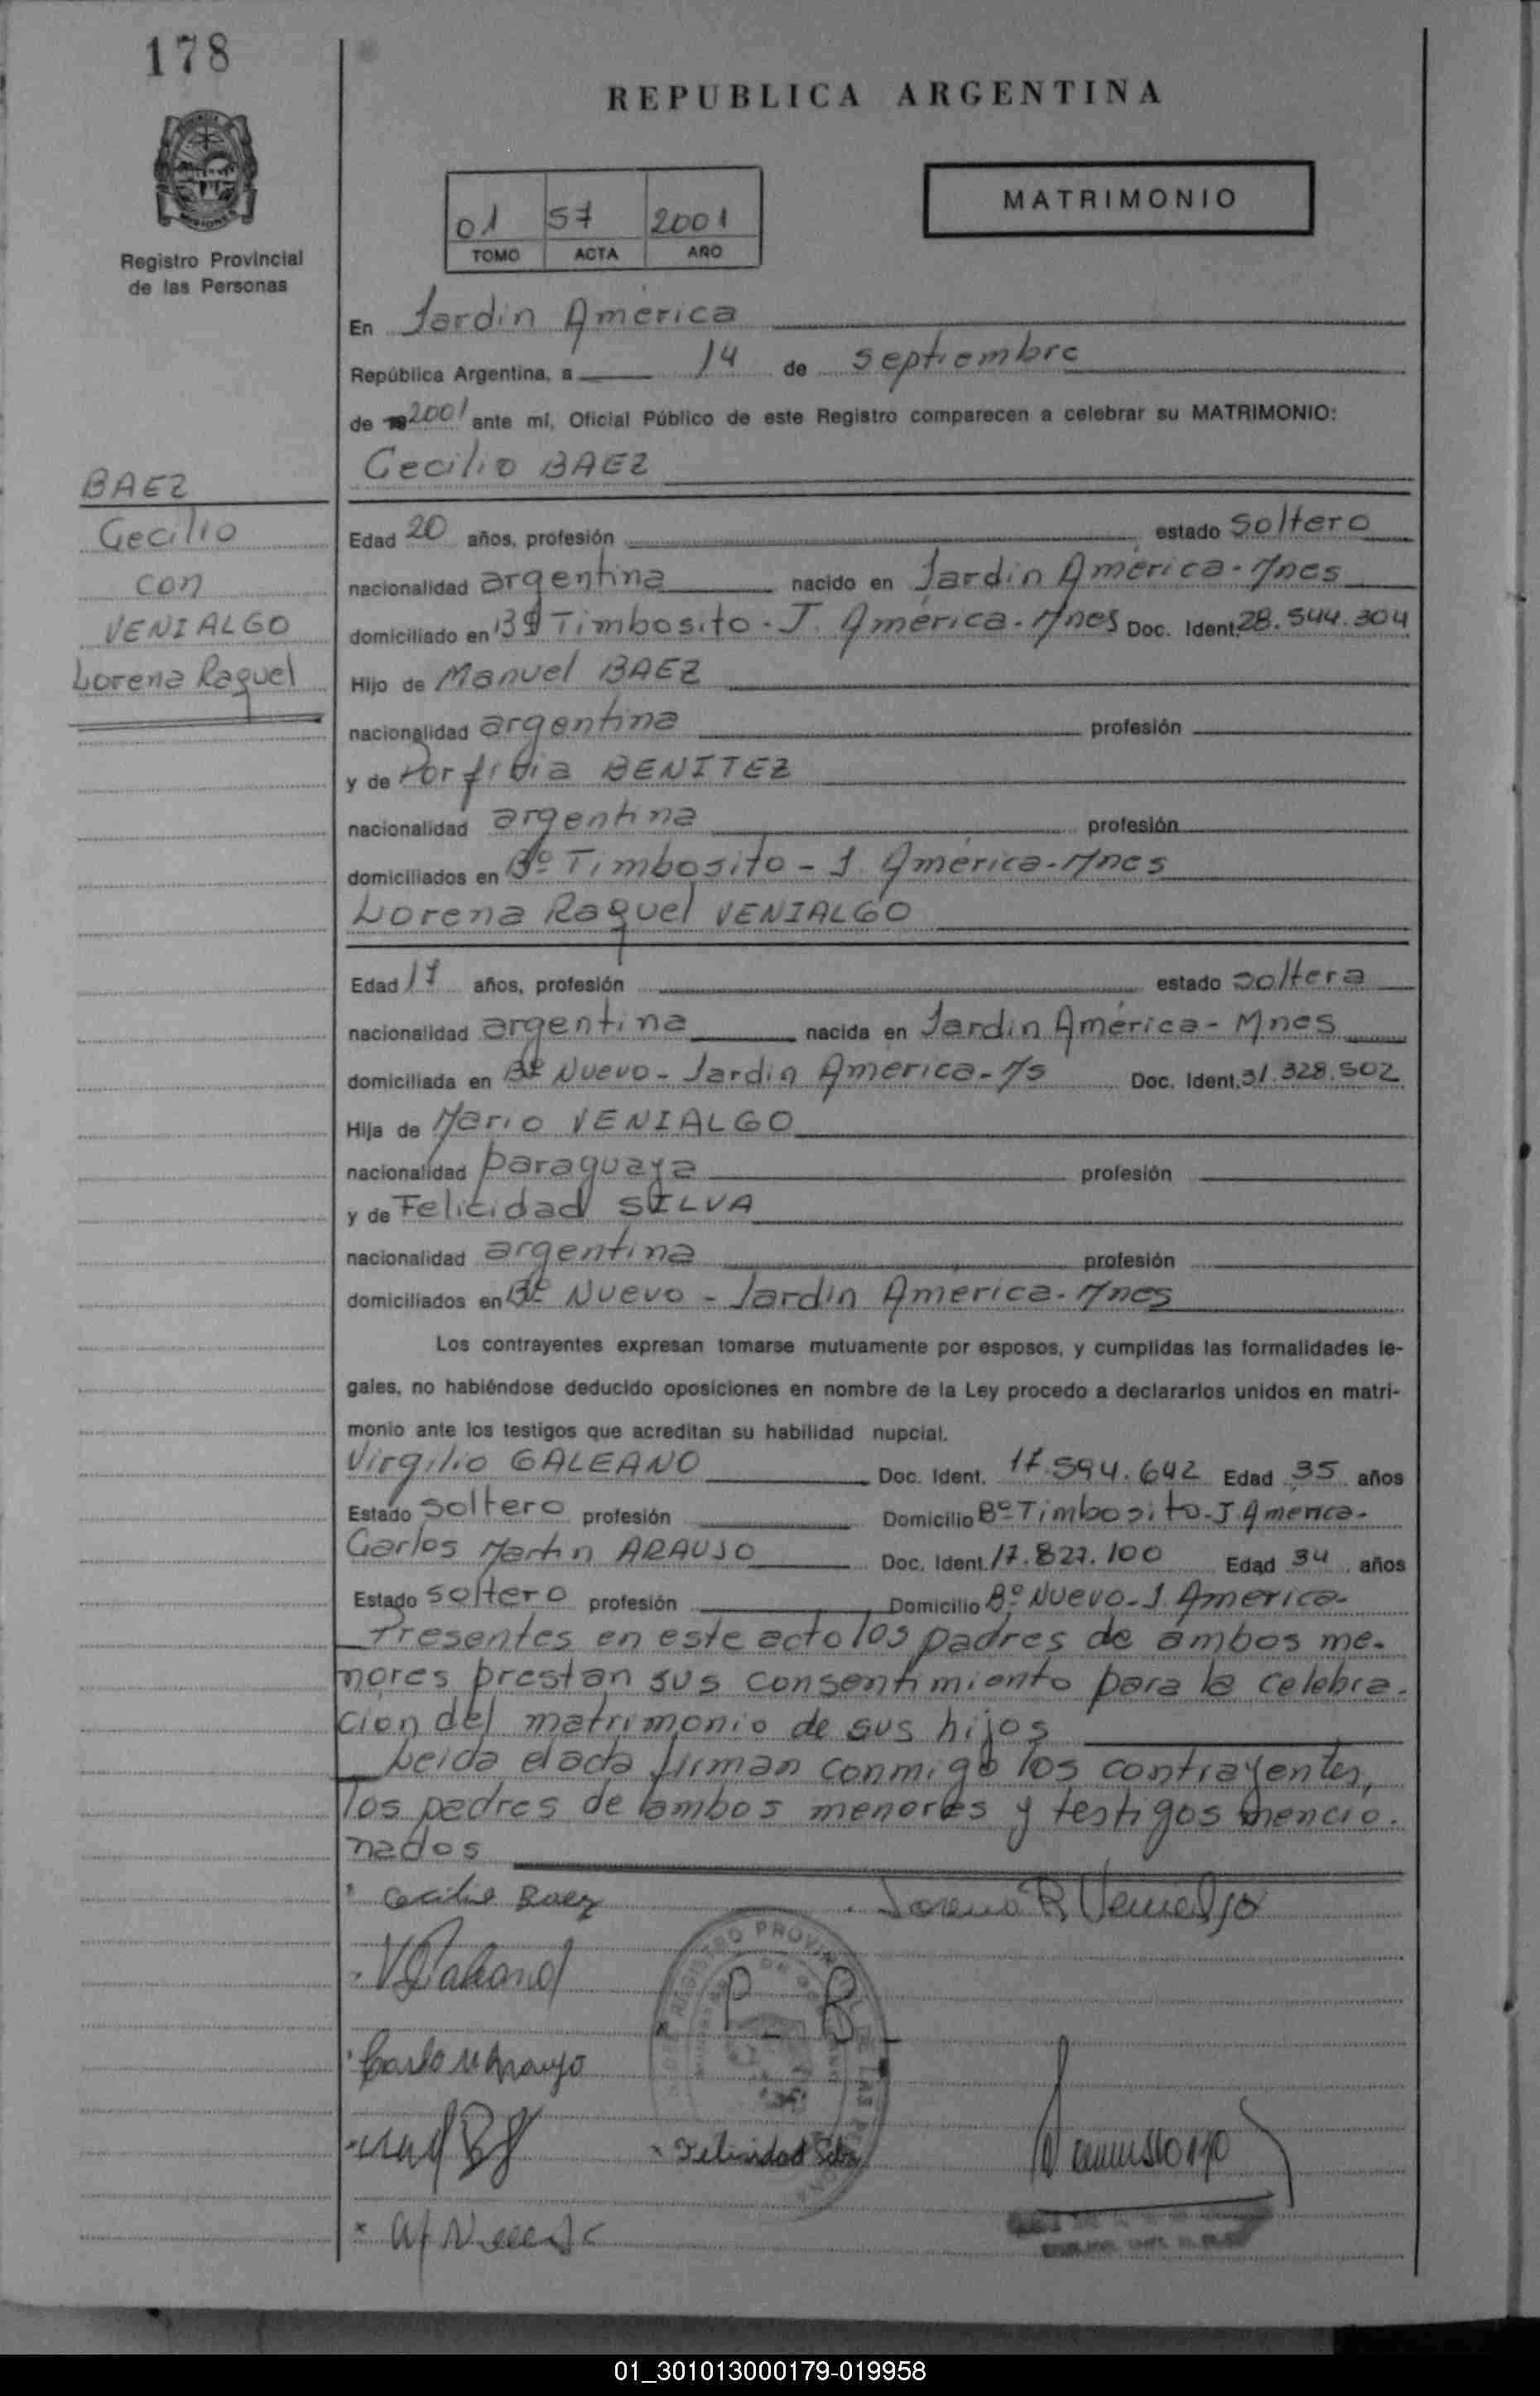 178
REPUBLICA ARGENTINA
MATRIMONIO
01 57 2001
TOMO ACTA AÑO
Registro Provincial
de las Personas
En Jardin América
República Argentina, a 14 de septiembre
de 2001 ante mi, Oficial Público de este Registro comparecen a celebrar su MATRIMONIO:
Cecilio BAEZ
BAEZ
Cecilio
con
VENIALGO
Lorena Raquel
Edad 20 años, profesión estado soltero
nacionalidad argentina nacido en Jardin América - Mnes
domiciliado en Bº Timbosito - J. América - Mnes Doc. Ident. 28.544.304
Hijo de Manuel BAEZ
nacionalidad argentina profesión
y de Porfiria BENITEZ
nacionalidad argentina profesión
domiciliados en Bº Timbosito - J. América - Mnes
Lorena Raquel VENIALGO
Edad 17 años, profesión estado soltera
nacionalidad argentina nacida en Jardin América - Mnes
domiciliada en Bº Nuevo - Jardin America - Ms Doc. Ident. 31.328.502
Hija de Mario VENIALGO
nacionalidad paraguaya profesión
y de Felicidad SILVA
nacionalidad argentina profesión
domiciliados en Bº Nuevo - Jardin America - Mnes
Los contrayentes expresan tomarse mutuamente por esposos, y cumplidas las formalidades le-
gales, no habiéndose deducido oposiciones en nombre de la Ley procedo a declararlos unidos en matri-
monio ante los testigos que acreditan su habilidad nupcial.
Virgilio GALEANO Doc. Ident. 17.594.642 Edad 35 años
Estado soltero profesión Domicilio Bº Timbosito - J. América -
Carlos Martin ARAUJO Doc. Ident. 17.827.100 Edad 34 años
Estado soltero profesión Domicilio Bº Nuevo - J. America -
Presentes en este acto los padres de ambos me-
nores prestan sus consentimiento para la celebra-
cion del matrimonio de sus hijos
Leida el acta firman conmigo los contrayentes,
los padres de ambos menores y testigos mencio-
nados
Cecilio Baez Lorena R. Venialgo
V Galeano
P B
Carlos M Araujo
Felicidad Silva
01_301013000179-019958